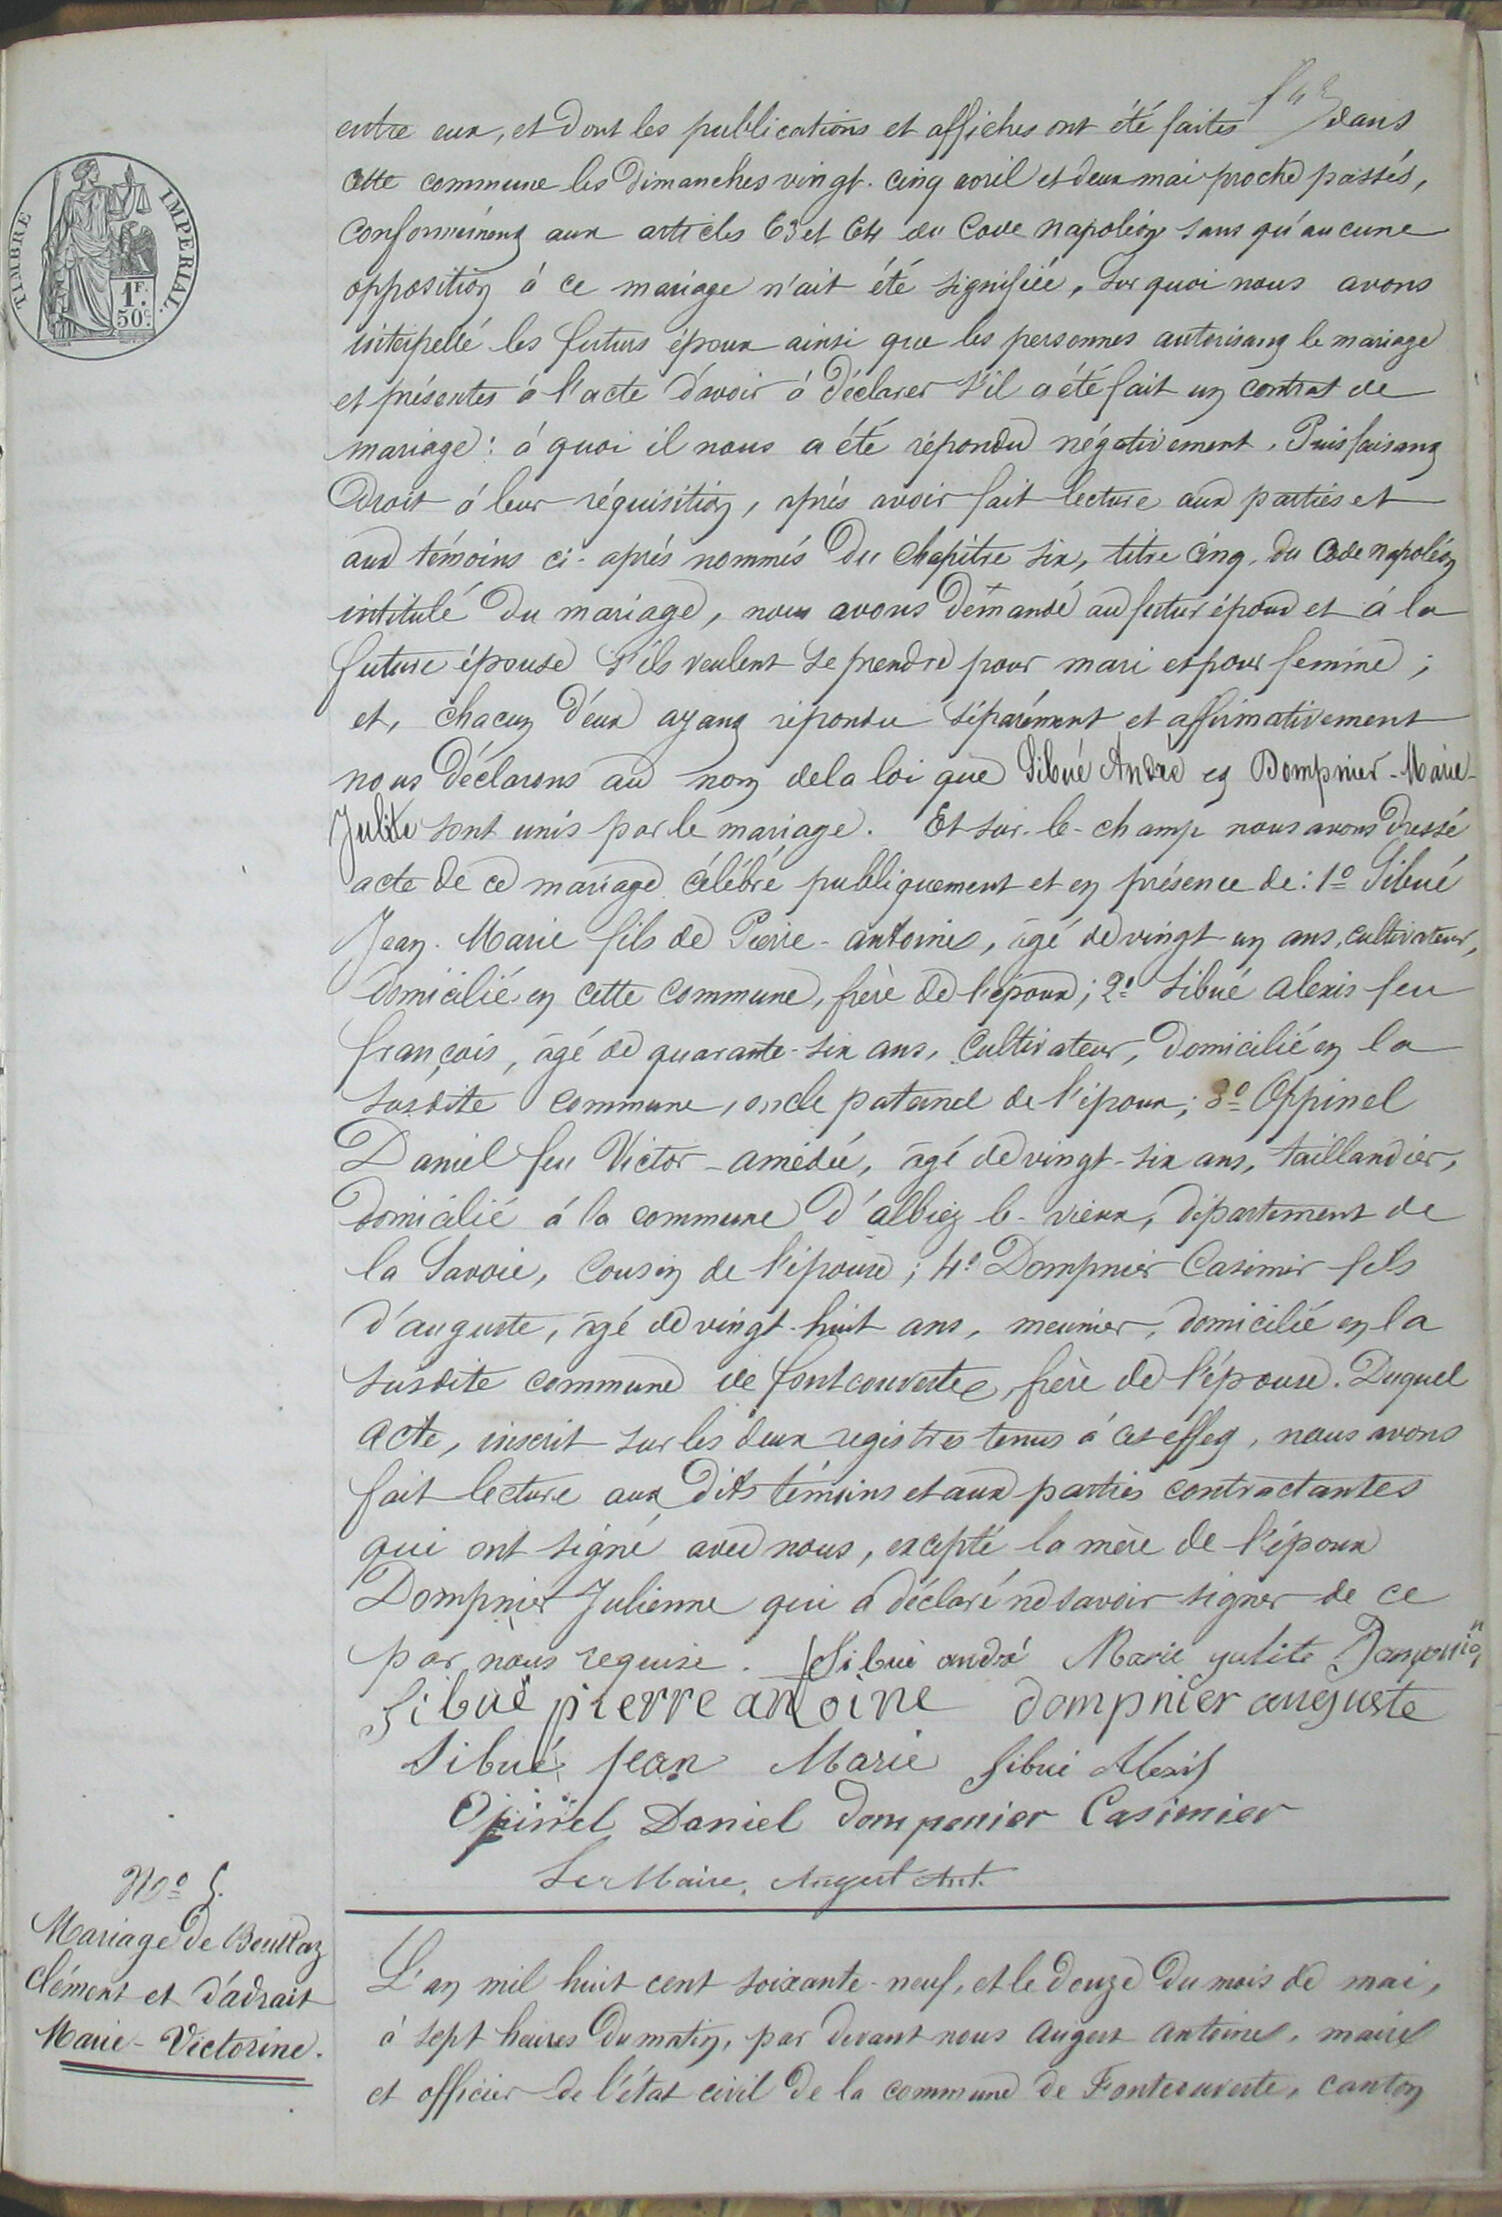 entre eux, et dont les publications et affiches ont été faites dans
cette commune les dimanches vingt-cinq avril et deux mai proche passés,
TIMBRE IMPERIAL.
1F.
50c.
conformément aux articles 63 et 64 du Code napoléon sans qu'aucune
opposition à ce mariage n'ait été signifiée, sur quoi nous avons
interpellé les futurs époux ainsi que les personnes autorisant le mariage
et présentes à l'acte d'avoir à déclarer s'il a été fait un contrat de
mariage: à quoi il nous a été répondu négativement. Puis faisant
droit à leur réquisition, après avoir fait lecture aux parties et
aux témoins ci-après nommés du chapitre six, titre cinq, du Code napoléon
intitulé du mariage, nous avons demandé au futur époux et à la
future épouse s'ils veulent se prendre pour mari et pour femme;
et, chacun d'eux ayant répondu séparément et affirmativement
nous déclarons au nom de la loi que Sibué André et Dompnier-Marie-
Julite sont unis par le mariage. Et sur-le-champ nous avons dressé
acte de ce mariage célébré publiquement et en présence de: 1º Sibué
Jean-Marie fils de Pierre-antoine, âgé de vingt un ans, cultivateur,
domicilié en cette commune, frère de l'époux; 2º Sibué alexis feu
françois, âgé de quarante-six ans, Cultivateur, domicilié en la
susdite commune, oncle paternel de l'époux; 3º Oppinel
Daniel feu Victor-amédée, âgé de vingt-six ans, taillandier,
domicilié à la commune d'albiez-le-vieux, département de
la Savoie, Cousin de l'épouse; 4º Dompnier Casimir fils
d'auguste, âgé de vingt-huit ans, meunier, domicilié en la
susdite commune de fontcouverte, frère de l'épouse. Duquel
acte, inscrit sur les deux registres tenus à cet effet, nous avons
fait lecture aux dits témoins et aux parties contractantes
qui ont signé avec nous, excepté la mère de l'époux
Dompnier Julienne qui a déclaré ne savoir signer de ce
par nous requise. Sibué andré Marie julite
Sibué pierre antoine dompnier auguste
Sibué Jean Marie Sibué Alexis
Opinel Daniel dompenier Casimier
Le Maire, Augert Ant.
Nº 5.
Mariage de
Clément et d'adrait
Marie-Victorine.
L'an mil huit cent soixante-neuf, et le douze du mois de mai,
à sept heures du matin, par devant nous augert antoine, maire
et officier de l'état civil de la commune de Fontcouverte, canton